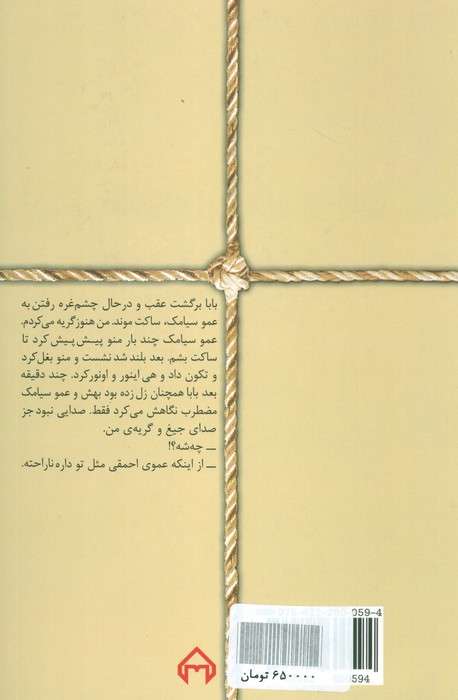 بابا برگشت عقب و درحال چشم‌غره رفتن به
عمو سیامک، ساکت موند. من هنوز گریه می‌کردم.
عمو سیامک چند بار منو پیش‌پیش کرد تا
ساکت بشم. بعد بلند شد نشست و منو بغل کرد
و تکون داد و هی اینور و اونور کرد. چند دقیقه
بعد بابا همچنان زل زده بود بهش و عمو سیامک
مضطرب نگاهش می‌کرد فقط. صدایی نبود جز
صدای جیغ و گریه‌ی من.
ــ چه‌شه؟!
ــ از اینکه عموی احمقی مثل تو داره ناراحته.
059-4
۶۵۰۰۰۰ تومان